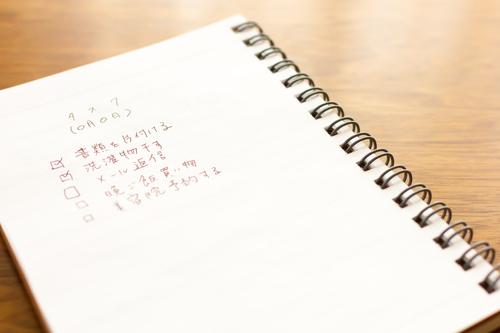 タスク
(〇月〇日)
☑ 書類を片付ける
☑ 洗濯物干す
□ メール返信
□ 晩ご飯買い物
□ 美容院予約する